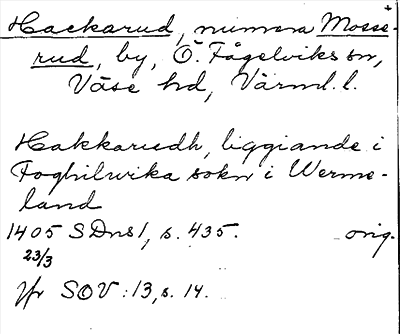 Hackarud, numera Mosse-
rud, by, Ö. Fågelviks sn,
Väse hd, Värml. l.
Hakkarudh, liggiande i
Foghilwika sokn i Werme-
land
1405 SDns 1, s. 435. orig.
23/3
Jfr SOV: 13, s. 14.